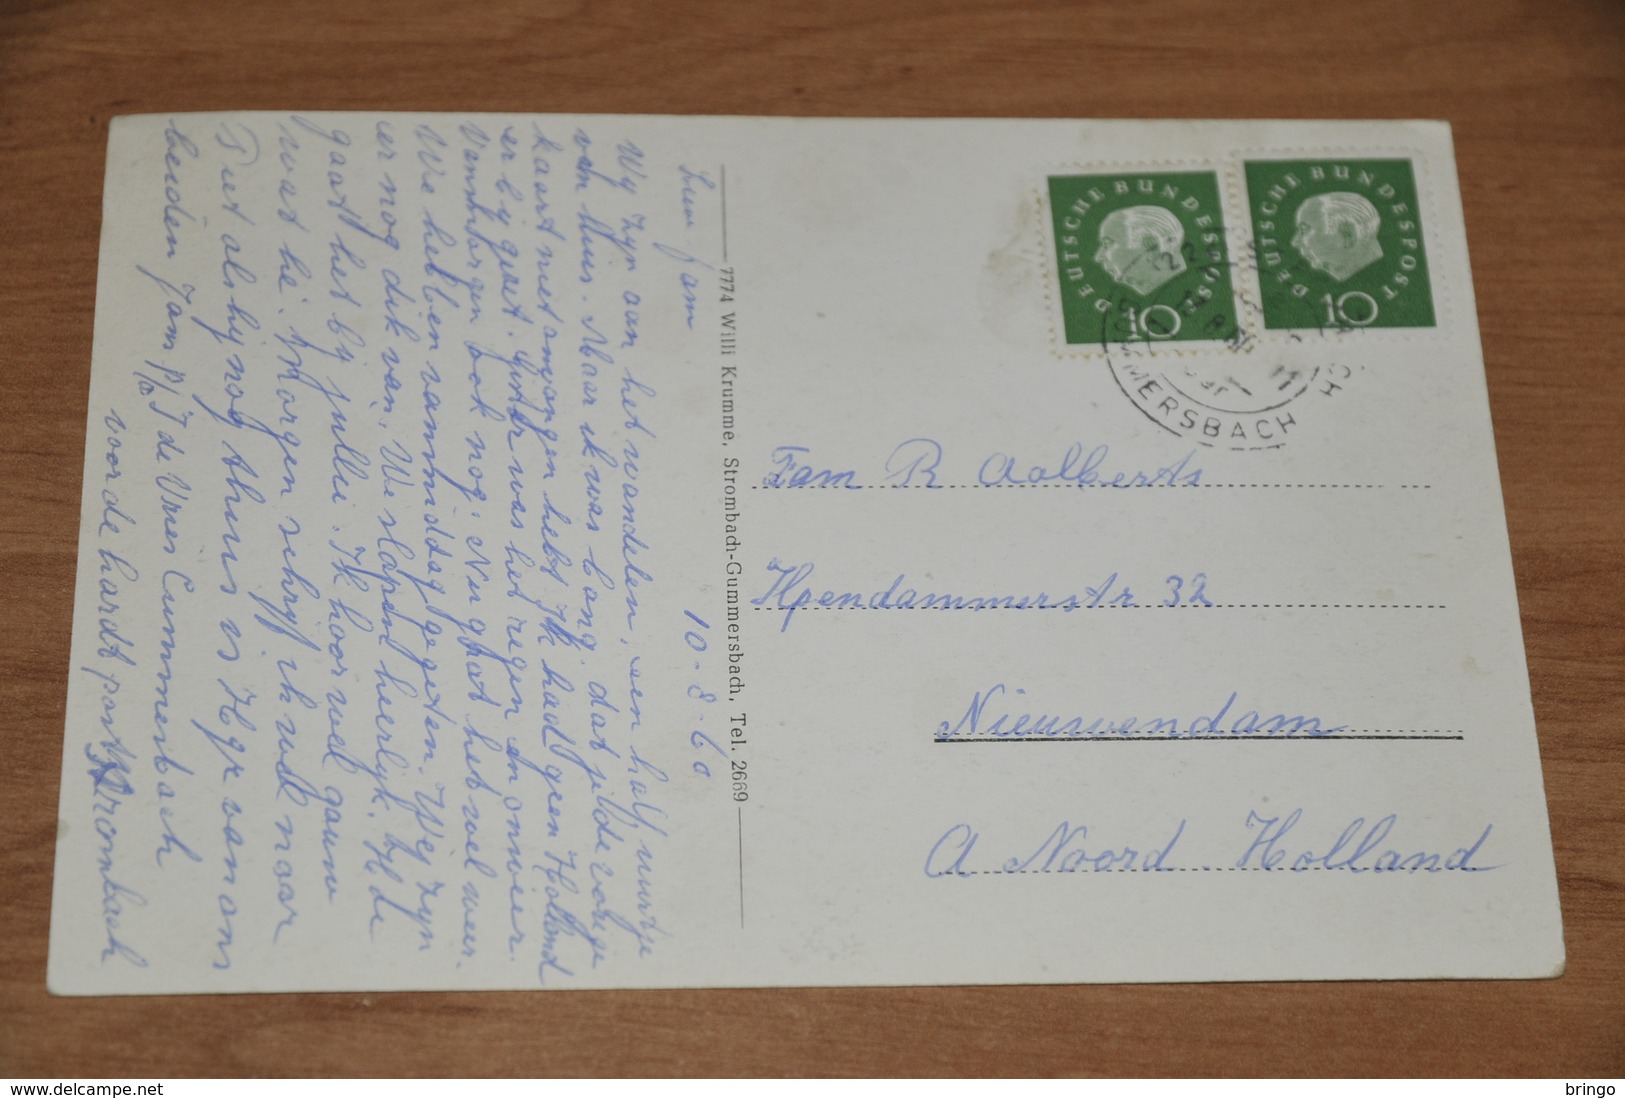 Luu fam 10-8-60
Wy zyn aan het wandelen, een half uurtje
van huus. Maar ik was bang. dat jilde vorige
kaart niet ontvangen hebt Ik had geen Holland
er by gezet. Gister was het regen en onweer.
Vanmorgen ook nog. Nu gaat het wel weer.
We hebben vanmiddag gegeten. Wej zyn
er nog dik van. We slapen heerlyk. H de
gaat het by jullie. Ik hoor wel gauw
wat hé. Morgen schryf ik und naar
Piet als hy nog thuis is Hgr van ons
beiden fam p/a J de Vries Cummersbach
voor de hardt post Strombach
7774 Willi Krumme, Strombach-Gummersbach, Tel. 2669
DEUTSCHE BUNDESPOST
10
DEUTSCHE BUNDESPOST
10
GUMMERSBACH
Fam R Aalberts
Hpendammerstr 32
Nieuwendam
A Noord Holland
http://www.delcampe.net
bringo